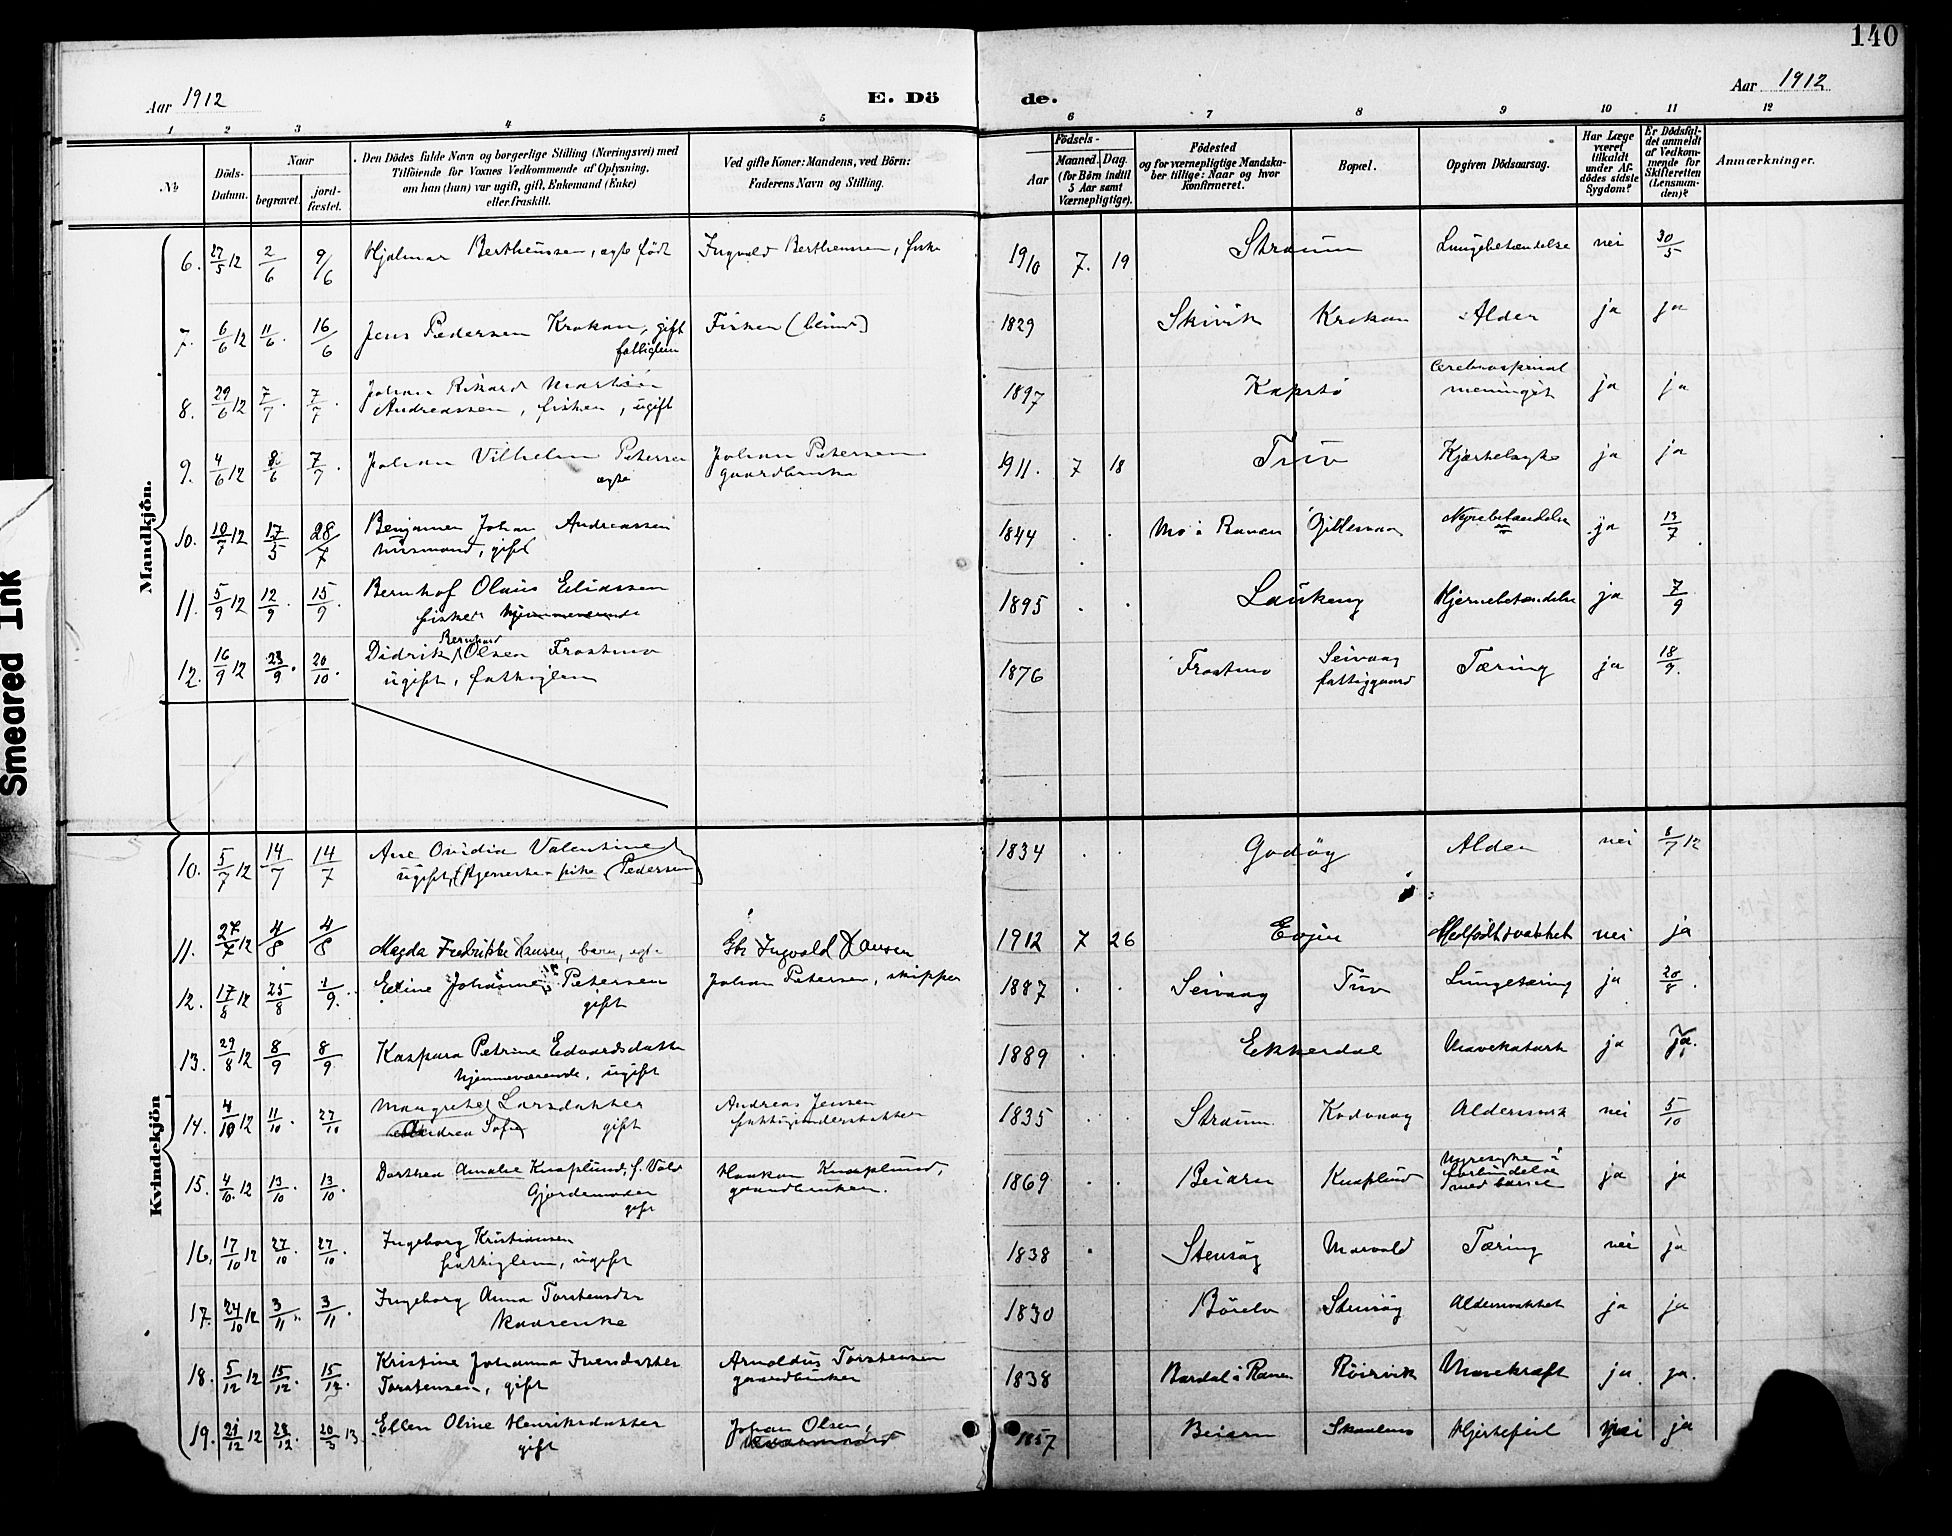 140
Aar 1912
E. Dö
de.
Aar 1912
1 2 3 4 5 6 7 8 9 10 11 12
№
Döds-Datum.
Naar
begravet.
jord-fæstet.
Den Dödes fulde Navn og borgerlige Stilling (Næringsvei) med
Tilföiende for Voxnes Vedkommende af Oplysning,
om han (hun) var ugift, gift, Enkemand (Enke)
eller fraskilt.
Ved gifte Koner: Mandens, ved Börn:
Faderens Navn og Stilling.
Födsels-
Aar
Maaned. Dag.
(for Börn indtil
5 Aar samt
Værnepligtige).
Födested
og for værnepligtige Mandska-
ber tillige: Naar og hvor
konfirmeret.
Bopæl.
Opgiven Dödsaarsag.
Har Læge
været
tilkaldt
under Af-
dödes sidste
Sygdom?
Er Dödsfal-
det anmeldt
af Vedkom-
mende for
Skifteretten
(Lensman-
den)?
Anmærkninger.
Mandkjön.
6. 27/5 12 2/6 9/6 Hjalmar Bertheussen, ægte født Ingvald Bertheussen, fisker 1910 7. 19 Straum Lungebetændelse nei 30/5
7. 6/6 12 11/6. 16/6 Jens Pedersen Krokan, gift Fisker (blind) 1829 Skivik Krokan Alder ja ja
fattiglem
8. 29/6 12 7/7. 7/7. Johan Rikard Martin 1897 Kapstø Cerebrospinal ja ja
Andreassen, fisker, ugift meningit
9. 4/6 12 8/6 7/7. Johan Vilhelm Petersen Johan Petersen 1911. 7 18 Tuv Kjertelsyke ja ja
ægte gaardbruker
10. 10/7 12 17/5 28/7 Benjamin Johan Andreassen 1844 Mo i Ranen Gillesvaag Nyrebetændelse ja 13/7
husmand, gift
11. 5/9 12 12/9. 15/9. Bernhof Olaus Eliassen 1895 Laukeng Hjernebetændelse ja 7/9
fisker hjemmeværende
12. 16/9 12 23/9. 20/10. Didrik Bernhard Olsen Frostmo 1876 Frostmo Seivaag Tæring ja 18/9.
ugift, fattiglem fattiggaard
Kvindekjön
10. 5/7 12 14/7 14/7 Ane Ovidia Valentine 1834 Godøy Alder nei 8/7 12
ugift, tjenestepike (Pedersen)
11. 27/7 12 4/8 4/8 Magda Fredrikke Hansen, barn, egte Gbr Ingvald Hansen 1912 7 26 Evjen Medfødt svakhet nei ja
12. 17/8 12 25/8 1/9. Eline Johanne Petersen Johan Petersen, skipper 1887 Seivaag Tuv Lungetæring ja 20/8.
gift
13. 29/8 12 8/9 8/9. Kaspara Petrine Edvardsdatter 1889 Ekkerdal Mavekatarh ja ja.
hjemmeværende, ugift
14. 4/10 12 11/10. 27/10 Maagrete Larsdatter Andreas Jensen 1835 Straum Kodvaag Aldersvak nei 5/10
Andrea Sofie gift fattigunderstøttet
15. 4/10. 12 13/10. 13/10. Dorthea Amalie Knaplund, f. Vold Haakon Knaplund, 1869 Beiarn Knaplund Nyresyke i forbindelse med barsel ja ja
Gjordemoder gaardbruker.
gift
16. 17/10 12 27/10. 27/10. Ingeborg Kristiansen 1838 Stensøy Marvold Tæring nei ja
fattiglem, ugift
17. 24/10 12 3/11. 3/11. Ingeborg Anna Torstensdtr 1830 Börelv Stensøy Aldersvakhet ja ja
kaarenke
18. 5/12 12 15/12. 15/12. Kristine Johanna Iversdatter Arnoldus Torstensen 1838 Bardal i Ranen Röirvik Mavekræft ja ja.
Torstensen, gift gaardbruker
19. 21/12 12 28/12. 20/3 13. Ellen Oline Henriksdatter Johan Olsen, 1857 Beiarn Hjertefeil nei ja
gift
Smeared Ink